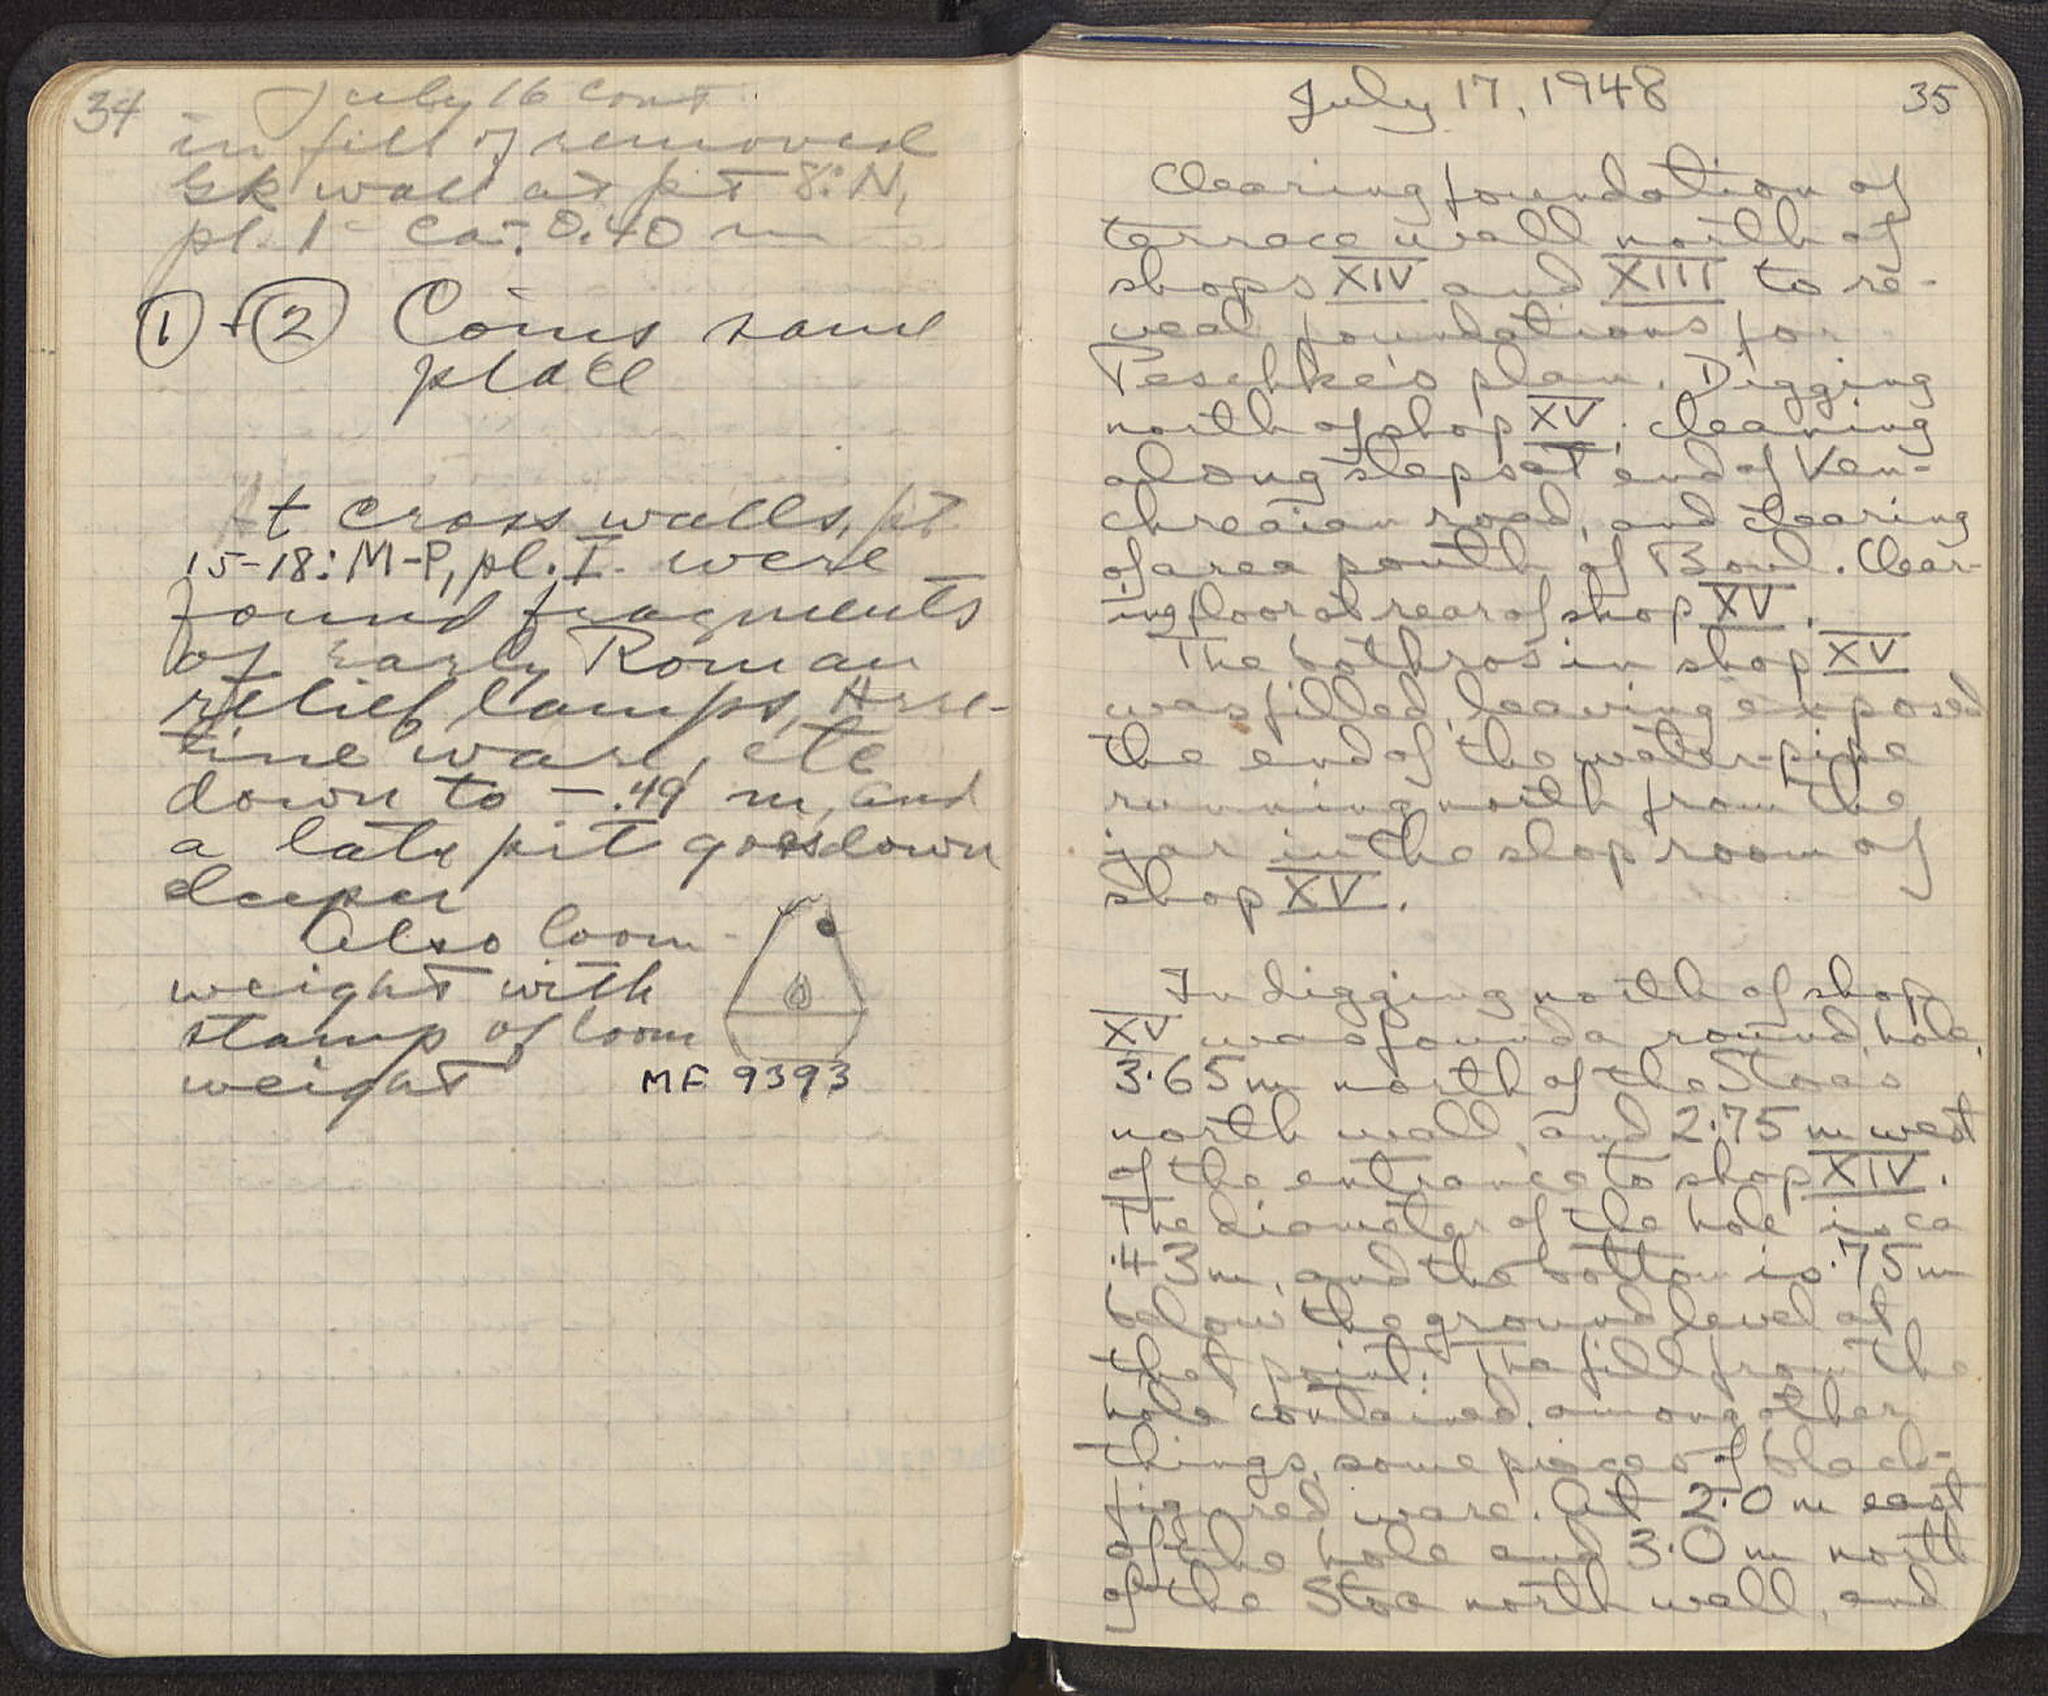 34
July 16 cont.
in fill of removed
Gk wall at pt 8:N,
pl. I - ca -. 0.40 m
1 + 2 Coins same
place
At cross walls, pt
15-18: M-P, pl. I. were
found fragments
of early Roman
relief lamps, Arre-
tine ware, etc
down to -.49 m, and
a late pit goes down
deeper
Also loom-
weight with
stamp of loom
weight MF 9393
July 17, 1948 35
Clearing foundation of
terrace wall north of
shops XIV and XIII to re-
veal foundations for
Peschke's plan. Digging
north of shop XV; cleaning
along steps at end of Ken-
chreaian road, and clearing
of area south of Boul. Clear-
ing floor at rear of shop XV.
The bothros in shop XV
was filled, leaving exposed
the end of the water-pipe
running north from the
jar in the shop room of
Shop XV.
In digging north of shop
XV was found a round hole,
3.65 m north of the Stoa's
north wall, and 2.75 m west
of the entrance to shop XIV.
The diameter of the hole is ca
.43 m, and the bottom is .75 m
below the ground level at
that point. The fill from the
hole contained, among other
things, some pieces of black-
figured ware. At 2.0 m east
of the hole and 3.0 m north
of the Stoa north wall, and